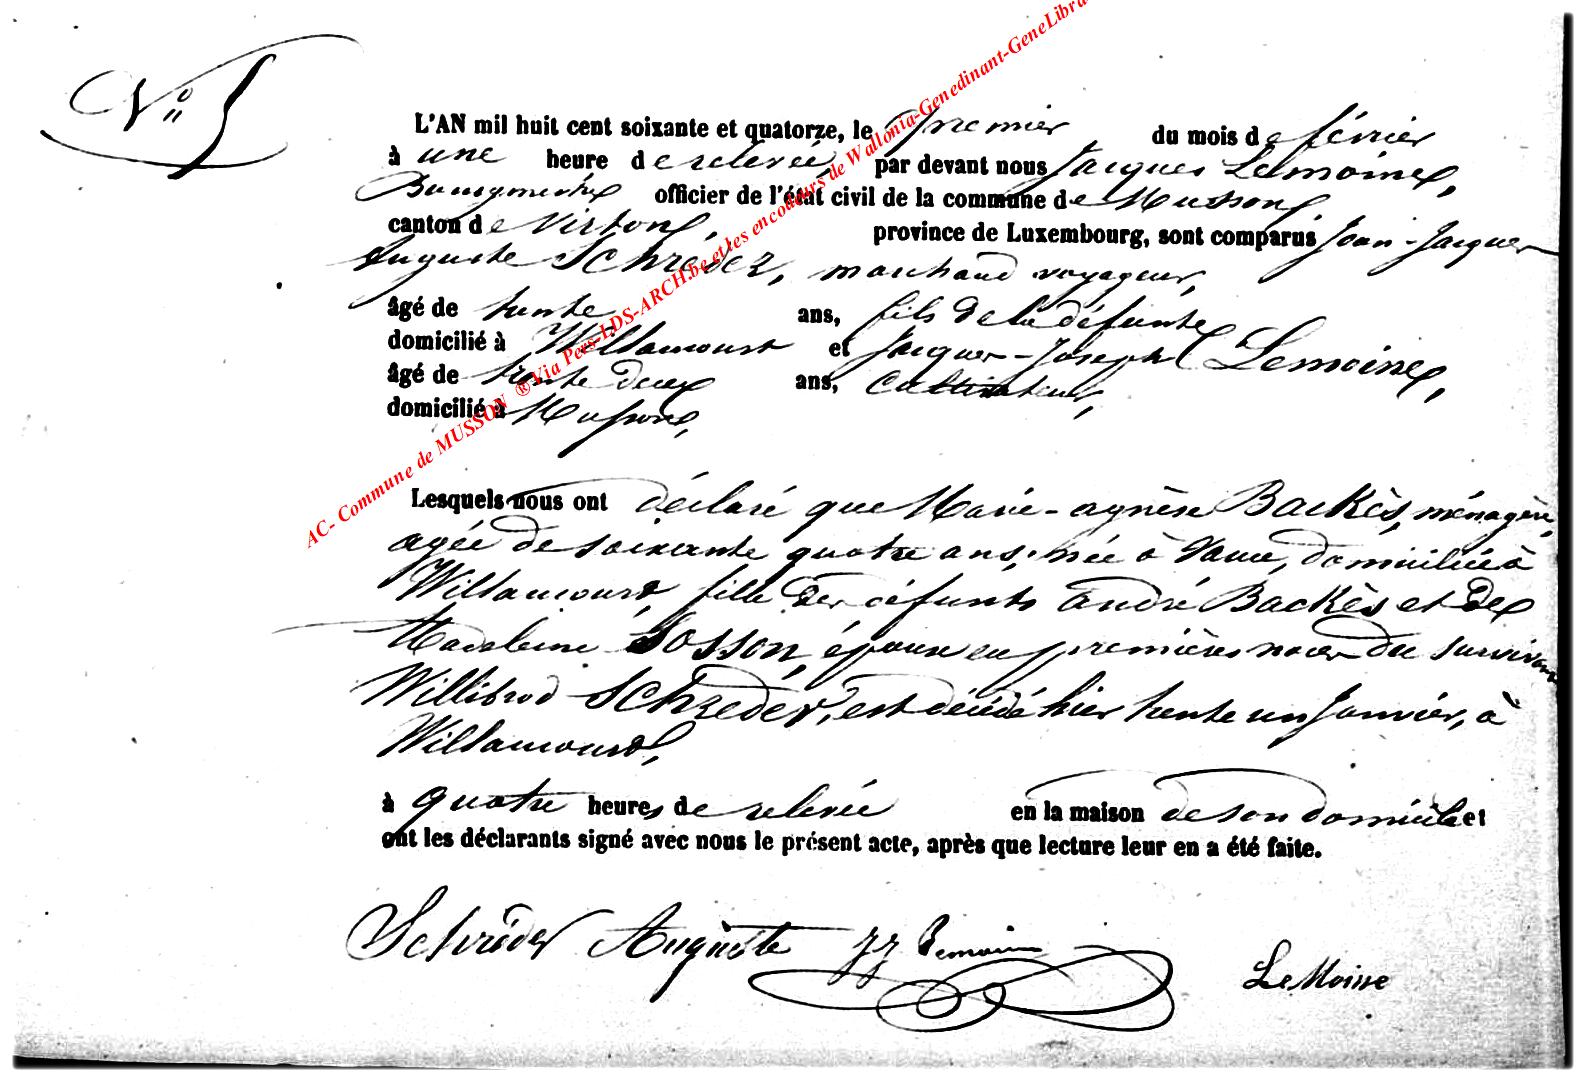 N° 5
L'AN mil huit cent soixante et quatorze, le premier du mois de février
à une heure de relevée, par devant nous Jacques Lemoine,
Bourgmestre officier de l'état civil de la commune de Musson,
canton de Virton, province de Luxembourg, sont comparus Jean-Jacques
Auguste Schréder, marchand voyageur,
âgé de trente ans, fils de la défunte
domicilié à Willancourt et Jacques-Joseph Lemoine,
âgé de trente deux ans, Cultivateur,
domicilié à Musson,
Lesquels nous ont déclaré que Marie-agnèse Backès, ménagère,
agée de soixante quatre ans, née à, domiciliée à
Willancourt, fille des défunts André Backès et de
Madeleine Sosson, épouse en premières noces du survivant
Willibrod Schreder, est décédé hier trente un Janvier, à
Willancourt,
à quatre heures de relevée en la maison de son domicile et
ont les déclarants signé avec nous le présent acte, après que lecture leur en a été faite.
Schréder Auguste JJ Lemoine LeMoine
AC- Commune de MUSSON ®Via Pers-LDS-ARCH.be et les encodeurs de Wallonia-Genedinant-GeneLibra